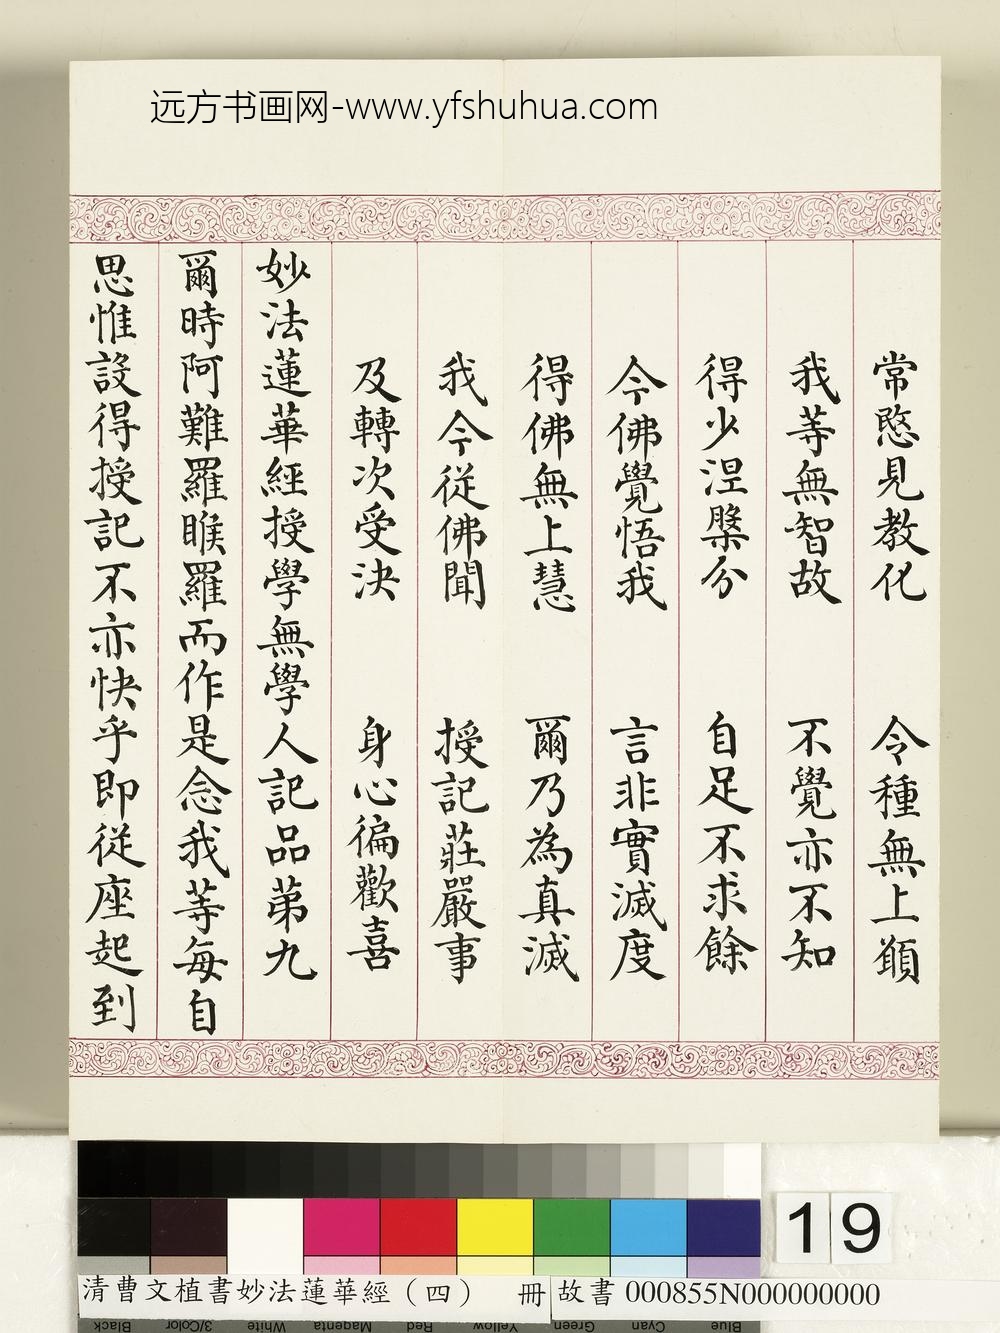 远方书画网-www.yfshuhua.com
常愍見教化 令種無上願
我等無智故 不覺亦不知
得少涅槃分 自足不求餘
今佛覺悟我 言非實滅度
得佛無上慧 爾乃為真滅
我今從佛聞 授記莊嚴事
及轉次受決 身心徧歡喜
妙法蓮華經授學無學人記品第九
爾時阿難羅睺羅而作是念我等每自
思惟設得授記不亦快乎即從座起到
19
清曹文植書妙法蓮華經（四） 冊
故書 000855N000000000
Black 3/Color White Magenta Red Yellow Green Cyan Blue